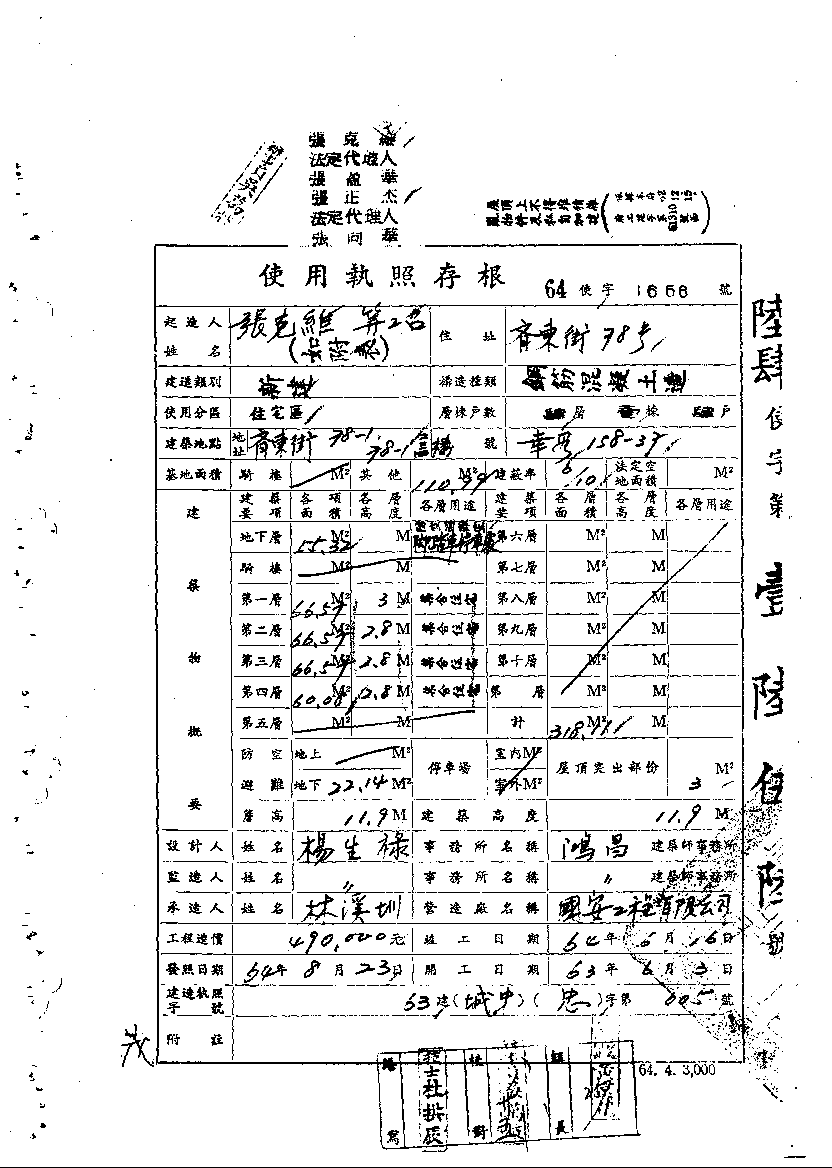 張克維
法定代理人
張盈華
張正杰
法定代理人
張向華
使用執照存根
64 使字 1656 號
起造人姓名 張克維 等2名 (如附表) 住址 齊東街78号
建造類別 構造種類 鋼筋混凝土造
使用分區 住宅區 層棟戶數 層 棟 戶
建築地點 地址 齊東街 78-1 78-1 三樓 號 幸 段 158-37
基地面積 騎樓 M² 其他 110.99 M² 建蔽率 法定空地面積 M²
建築物概要
建築要項 各項面積 各層高度 各層用途 建築要項 各層面積 各層高度 各層用途
地下層 55.32 M² M 第六層 M² M
騎樓 M² M 第七層 M² M
第一層 66.57 M² 3 M 集合住宅 第八層 M² M
第二層 66.57 M² 2.8 M 集合住宅 第九層 M² M
第三層 66.57 M² 2.8 M 集合住宅 第十層 M² M
第四層 60.08 M² 2.8 M 集合住宅 第 層 M² M
第五層 M² M 計 318.11 M² M
防空避難 地上 M² 停車場 室內 M² 屋頂突出部份 M²
地下 22.14 M² 室外 M² 3
簷高 11.9 M 建築高度 11.9 M
設計人 姓名 楊生祿 事務所名稱 鴻昌 建築師事務所
監造人 姓名 〃 事務所名稱 〃 建築師事務所
承造人 姓名 林溪圳 營造廠名稱 興安工程有限公司
工程造價 490,000元 竣工日期 64年6月16日
發照日期 64年8月23日 開工日期 63年6月3日
建造執照字號 63建(城中)(忠)字第605號
附註
64. 4. 3,000
繕寫 技士杜拱辰 校對 組長
陸肆使字第壹陸伍陸號